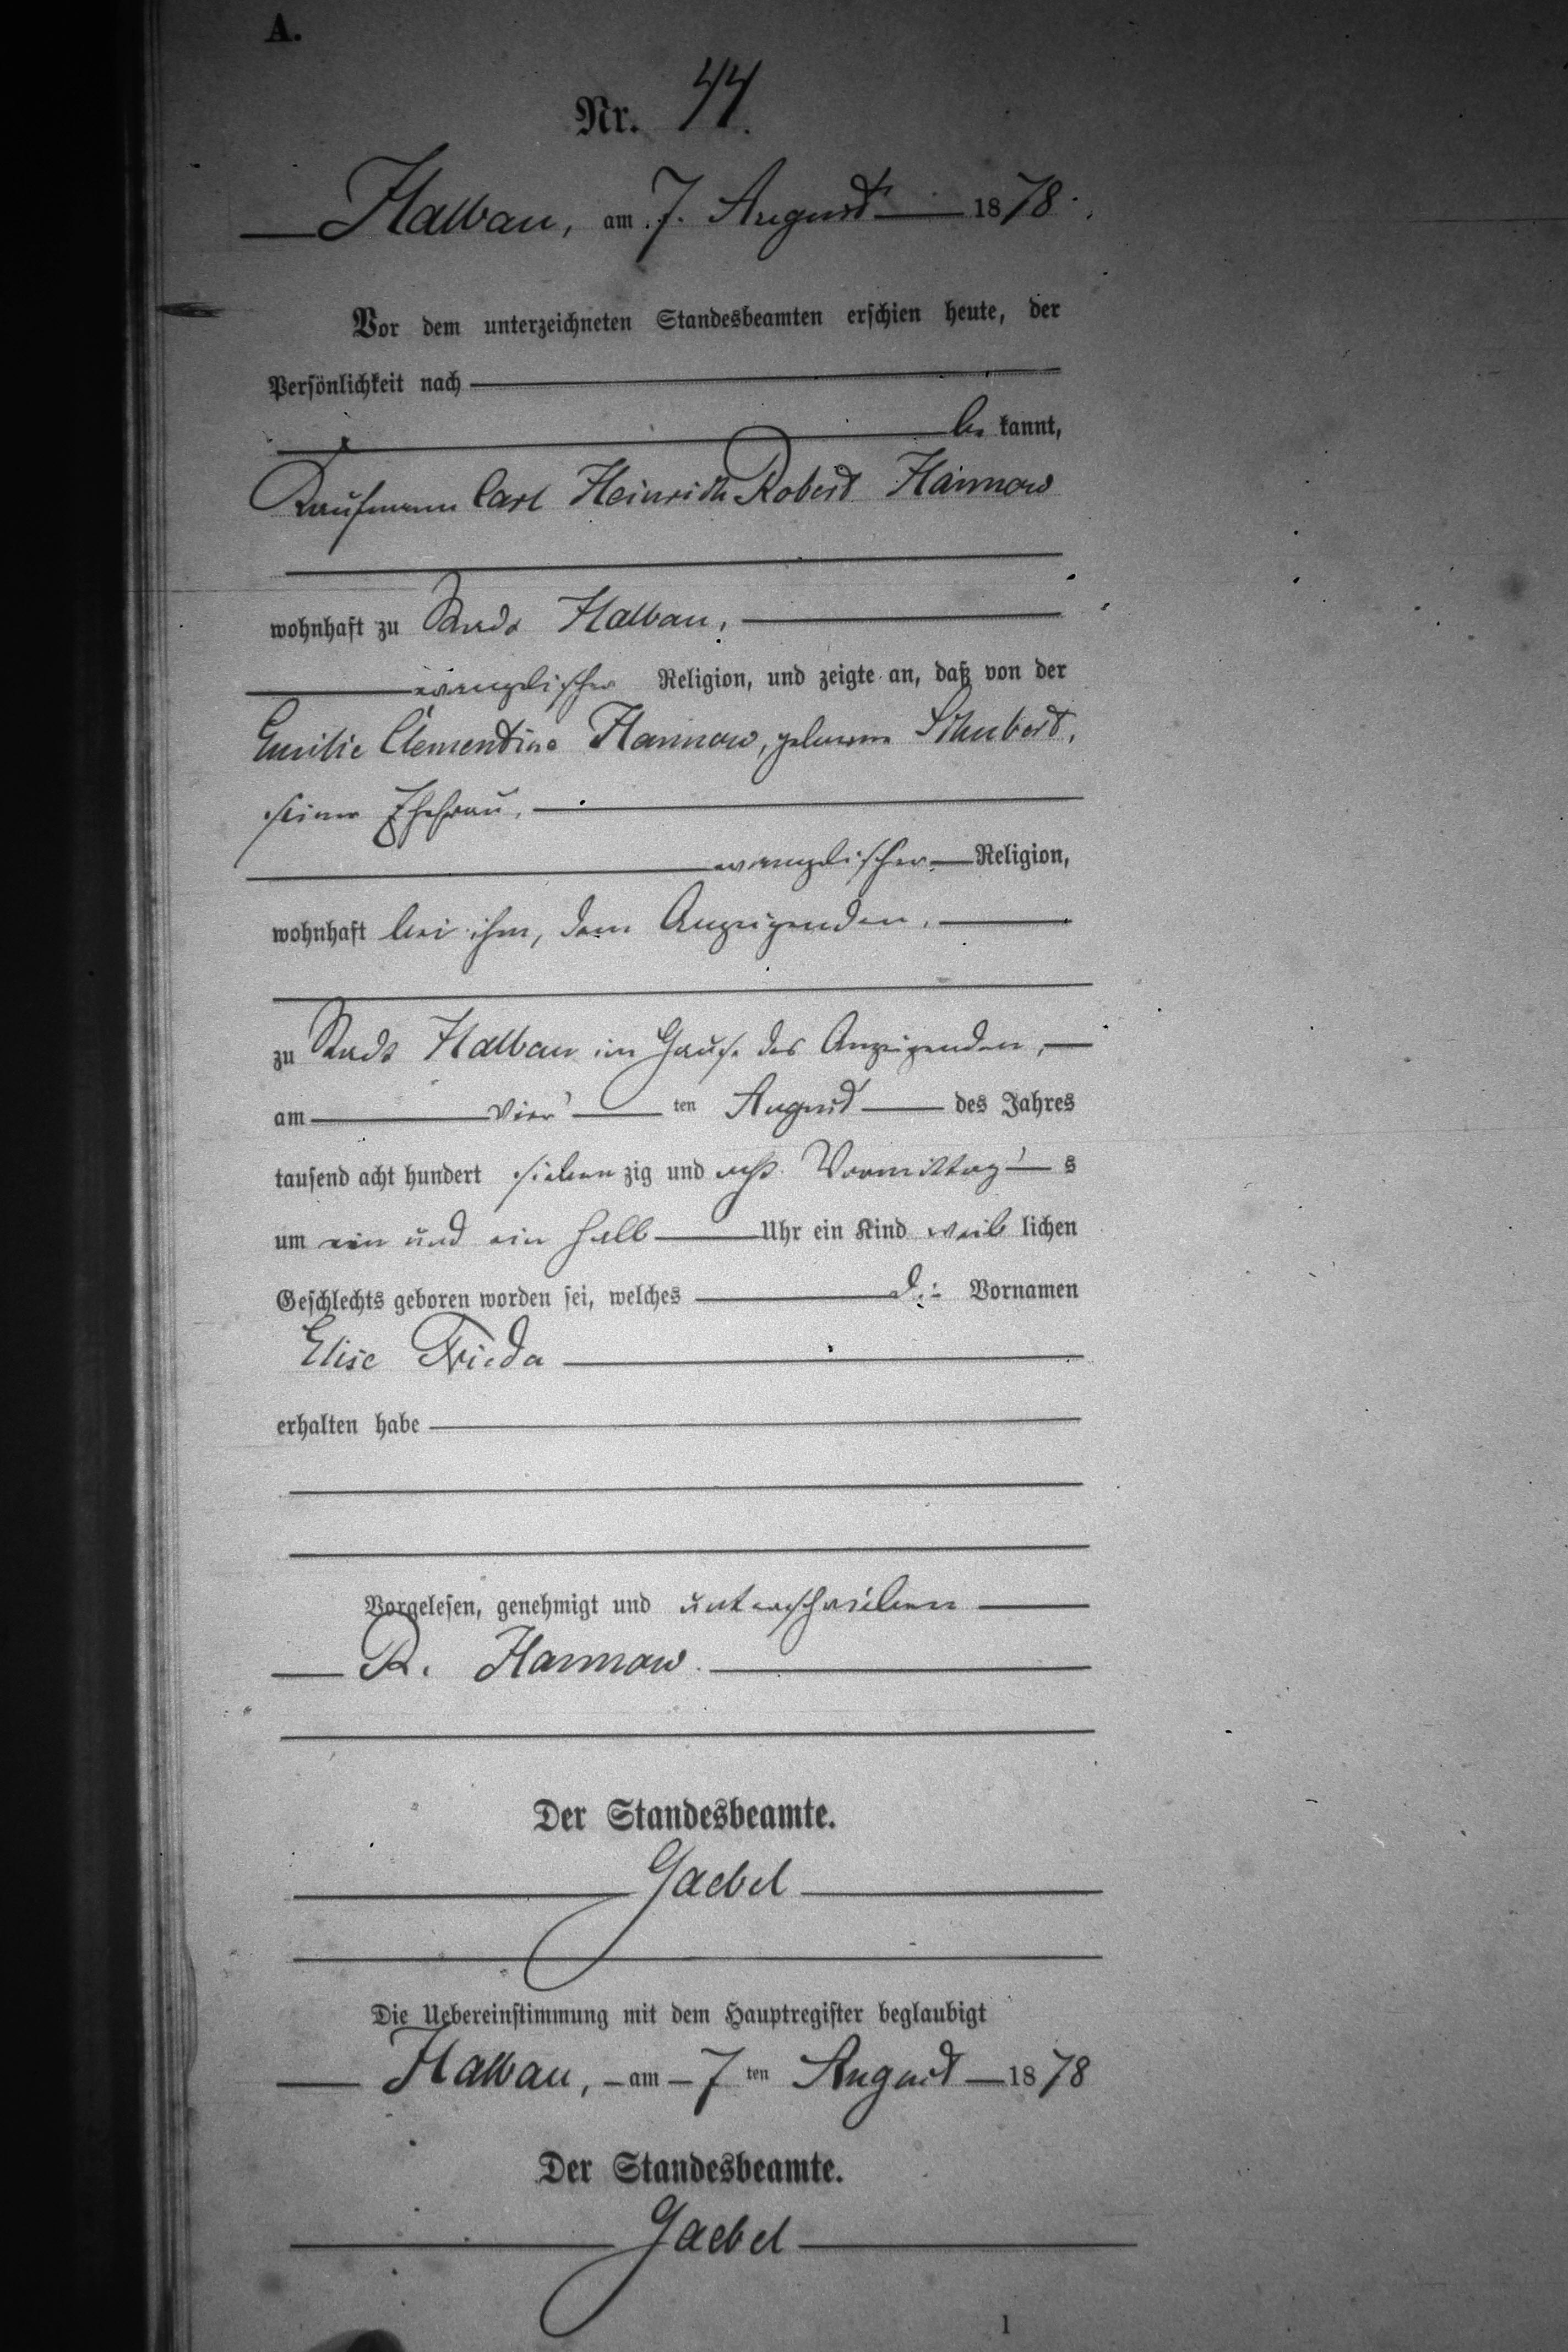 A.
Nr. 44.
Halbau, am 7. August 1878.
Vor dem unterzeichneten Standesbeamten erschien heute, der
Persönlichkeit nach
be kannt,
Kaufmann Carl Heinrich Robert Hannow
wohnhaft zu Stadt Halbau,
evangelischer Religion, und zeigte an, daß von der
Emilie Clementine Hannow, geborene Schubert,
seiner Ehefrau,
evangelischer Religion,
wohnhaft bei ihm, dem Anzeigenden,
zu Stadt Halbau im Hause des Anzeigenden,
am vier ten August des Jahres
tausend acht hundert sieben zig und acht Vormittag s
um ein und ein halb Uhr ein Kind weib lichen
Geschlechts geboren worden sei, welches die Vornamen
Elise Frieda
erhalten habe
Vorgelesen, genehmigt und unterschrieben
R. Hannow.
Der Standesbeamte.
Gaebel
Die Uebereinstimmung mit dem Hauptregister beglaubigt
Halbau, am 7 ten August 1878
Der Standesbeamte.
Gaebel
1